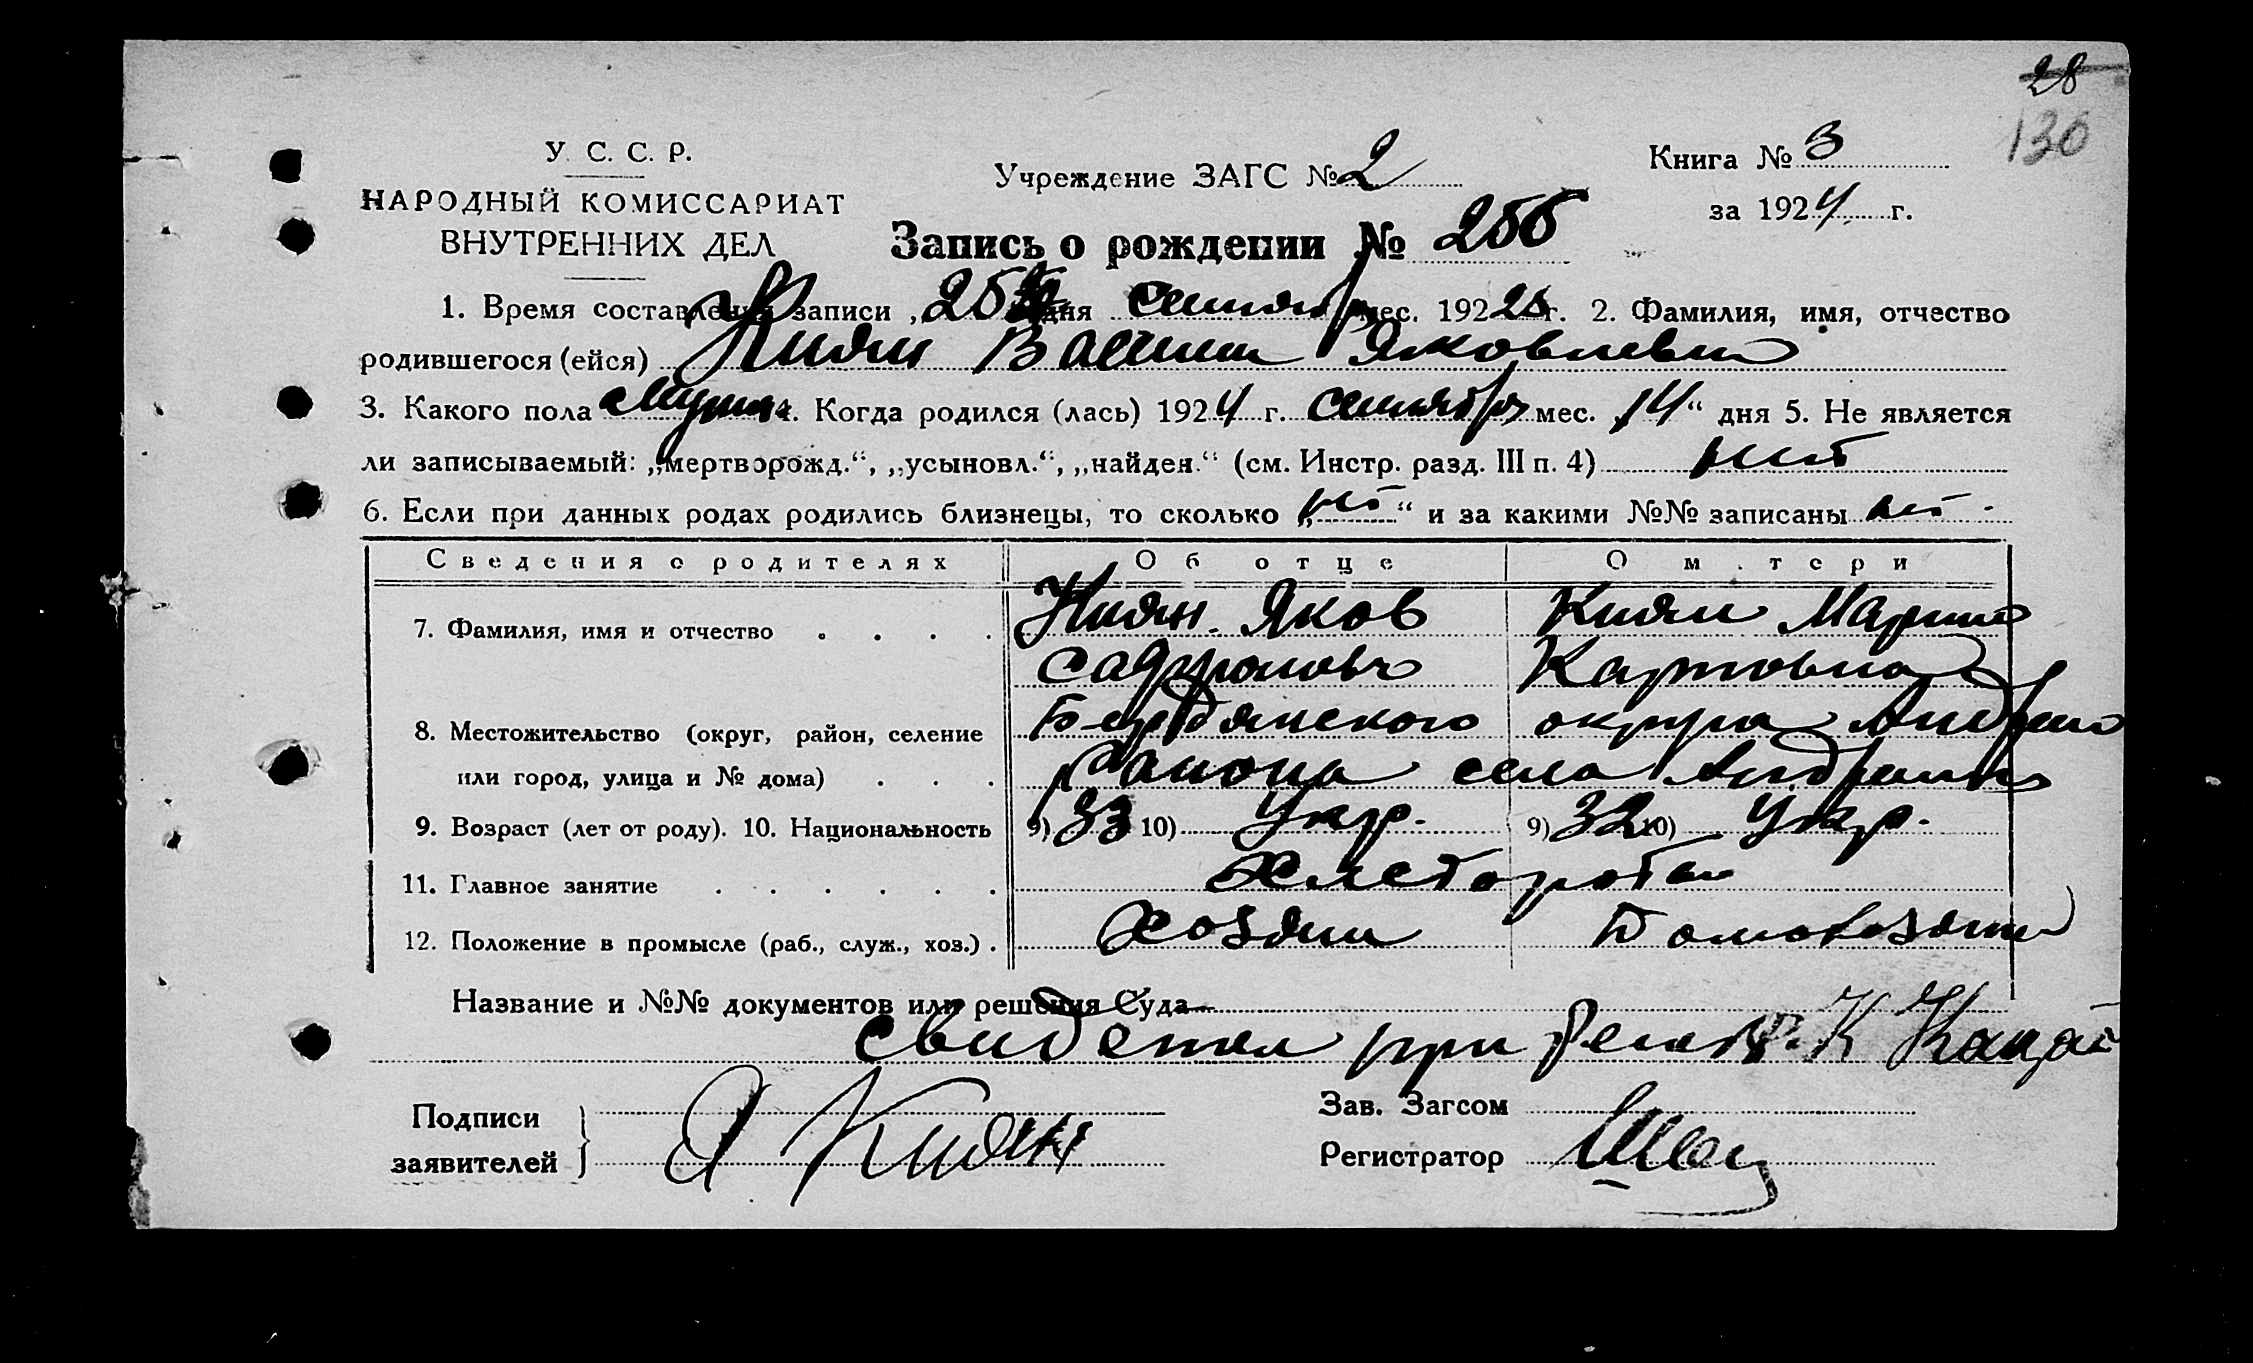 28
130
У. С. С. Р.
НАРОДНЫЙ КОМИССАРИАТ
ВНУТРЕННИХ ДЕЛ
Учреждение ЗАГС № 2
Книга № 3
за 1924 г.
Запись о рождении № 255
1. Время составления записи „25 дня сентябр мес. 192 г. 2. Фамилия, имя, отчество
родившегося (ейся) Киян Василий Яковлевич
3. Какого пола Мужск. 4. Когда родился (лась) 1924 г. сентября мес. „14“ дня 5. Не является
ли записываемый: „мертворожд.“, „усыновл.“, „найден.“ (см. Инстр. разд. III п. 4) нет
6. Если при данных родах родились близнецы, то сколько „нет“ и за какими №№ записаны нет
Сведения о родителях Об отце О матери
7. Фамилия, имя и отчество . . . . Киян Яков Киян Марина
Сафронович Карповна
8. Местожительство (округ, район, селение Бердянского округа Андреев
или город, улица и № дома) . . . района села Андреевки
9. Возраст (лет от роду). 10. Национальность 9) 33 10) Укр. 9) 32 10) Укр.
11. Главное занятие . . . . . . Хлебороб
12. Положение в промысле (раб., служ., хоз.) . Хозяин Домохозяин
Название и №№ документов или решения Суда
свидетел при К
Подписи
заявителей
Я Киян
Зав. Загсом
Регистратор